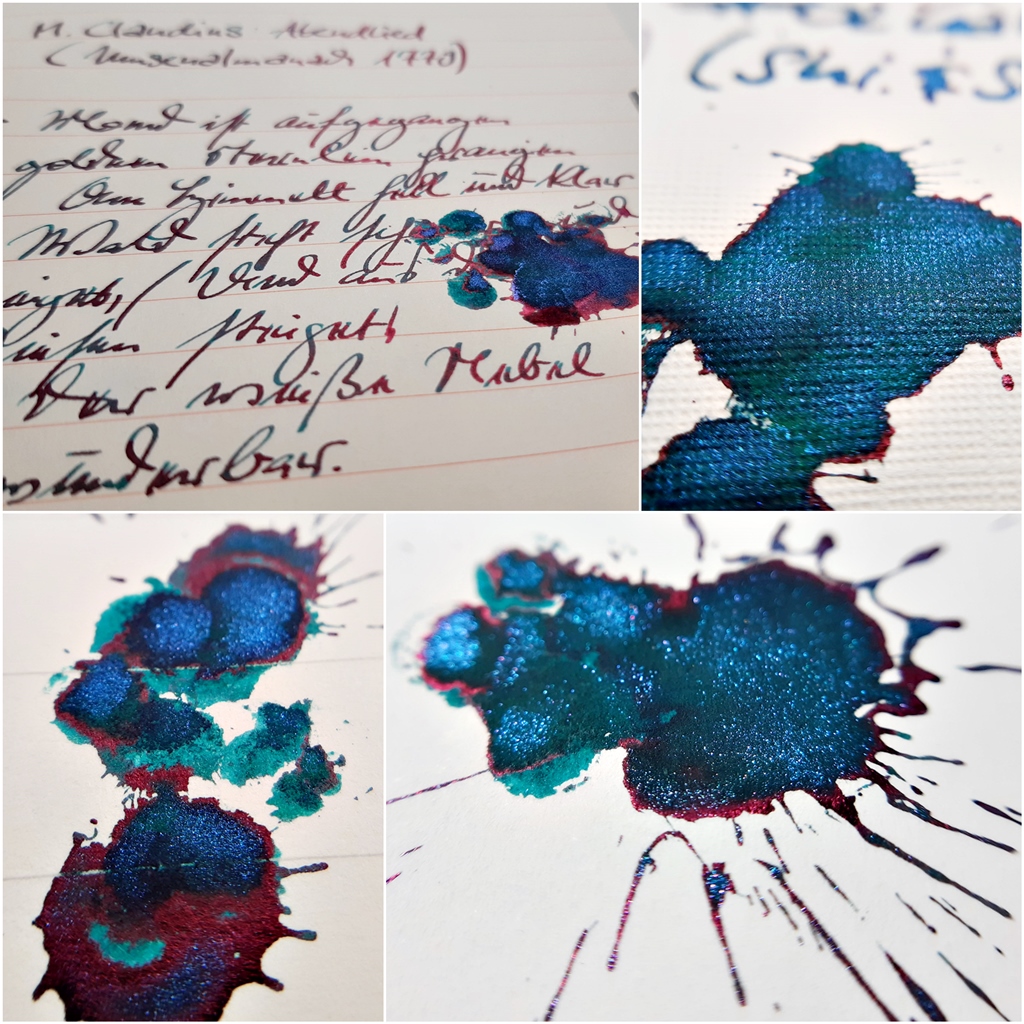 M. Claudius: Abendlied
(Musenalmanach 1779)
Mond ist aufgegangen
goldnen Sternlein prangen
Am Himmel hell und klar
Wald steht
und
/ Und aus
iesen steiget
Der weiße Nebel
wunderbar.
(Shi.